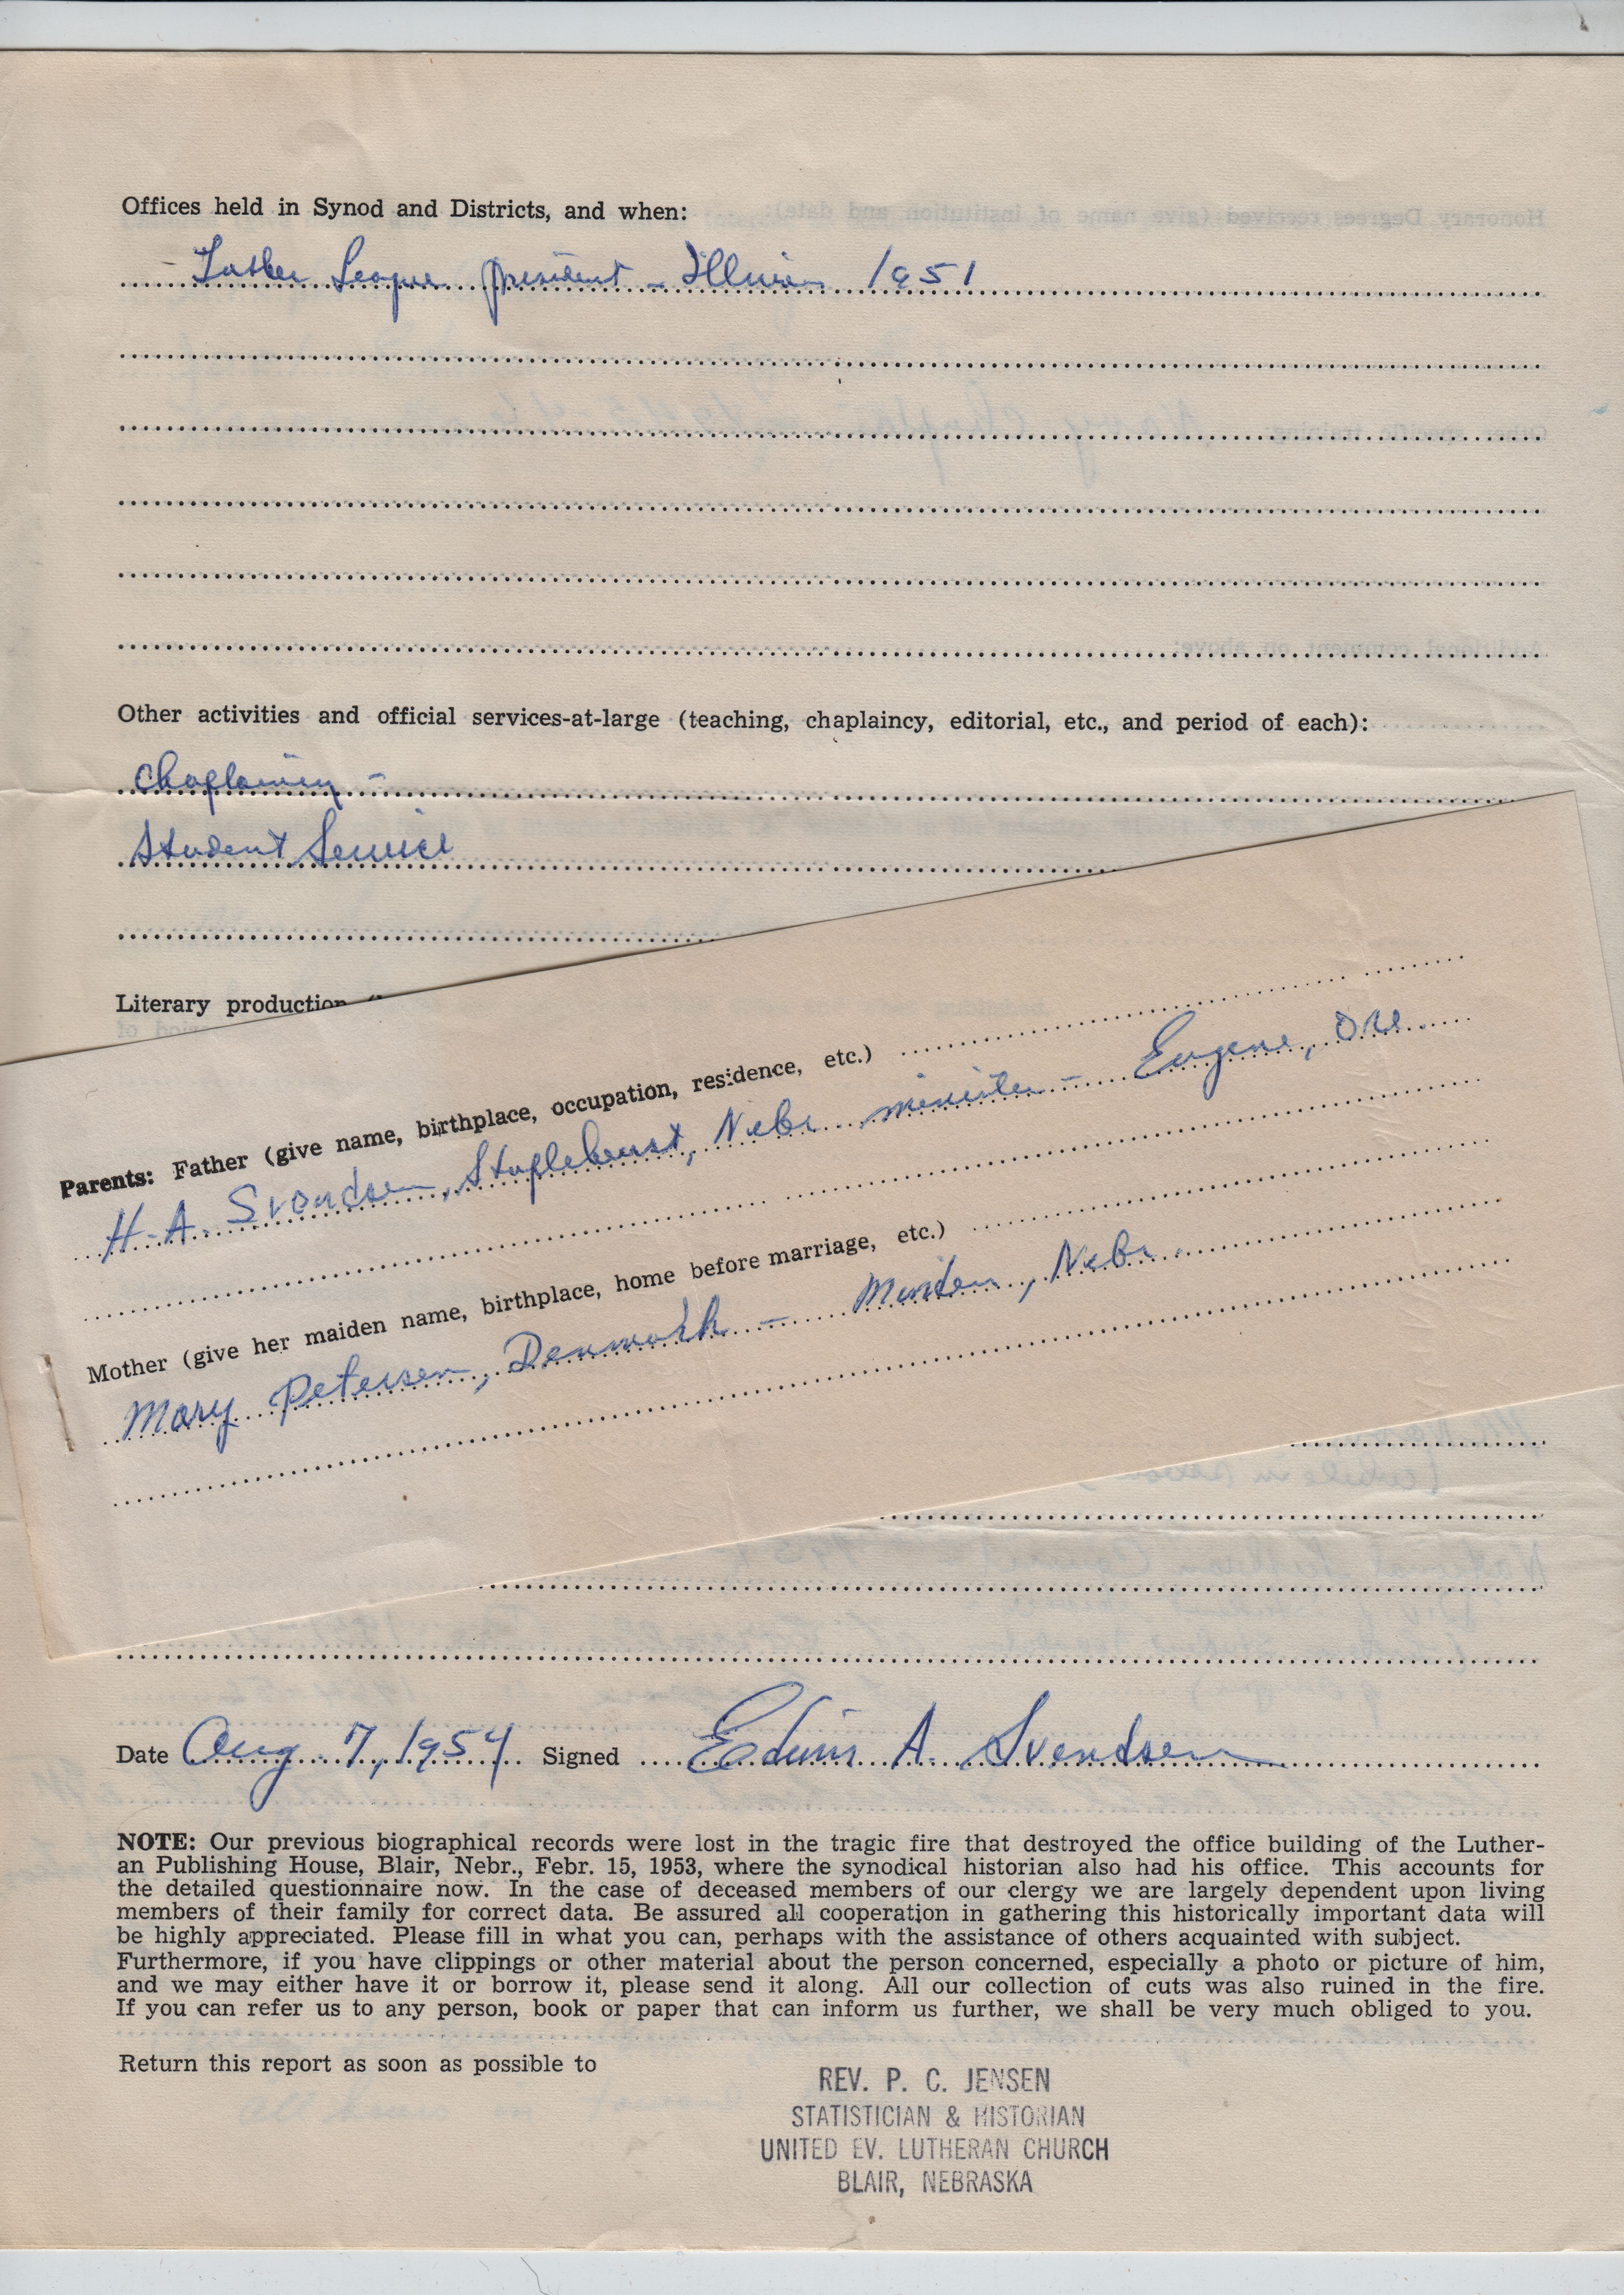 Offices held in Synod and Districts, and when:
- Luther League president - Illinois 1951
Other activities and official services-at-large (teaching, chaplaincy, editorial, etc., and period of each):
Chaplaincy -
Student Service
Literary production
Parents: Father (give name, birthplace, occupation, residence, etc.)
H. A. Svendsen, Staplehurst, Nebr minister - Eugene, Ore.
Mother (give her maiden name, birthplace, home before marriage, etc.)
Mary Petersen, Denmark - Minden, Nebr.
Date Aug 7, 1954 Signed Edwin A. Svendsen
NOTE: Our previous biographical records were lost in the tragic fire that destroyed the office building of the Luther-
an Publishing House, Blair, Nebr., Febr. 15, 1953, where the synodical historian also had his office. This accounts for
the detailed questionnaire now. In the case of deceased members of our clergy we are largely dependent upon living
members of their family for correct data. Be assured all cooperation in gathering this historically important data will
be highly appreciated. Please fill in what you can, perhaps with the assistance of others acquainted with subject.
Furthermore, if you have clippings or other material about the person concerned, especially a photo or picture of him,
and we may either have it or borrow it, please send it along. All our collection of cuts was also ruined in the fire.
If you can refer us to any person, book or paper that can inform us further, we shall be very much obliged to you.
Return this report as soon as possible to
REV. P. C. JENSEN
STATISTICIAN & HISTORIAN
UNITED EV. LUTHERAN CHURCH
BLAIR, NEBRASKA